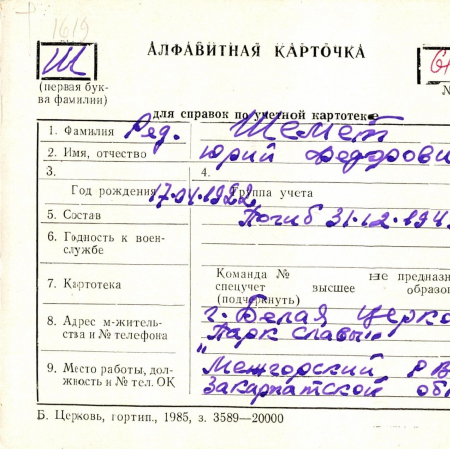 1619
Ш
АЛФАВИТНАЯ КАРТОЧКА
(первая бук-
ва фамилии)
№
для справок по учетной картотеке
1. Фамилия Ряд. Шемет
2. Имя, отчество Юрий Федорови
3.
Год рождения 17.04.1922
4.
Группа учета
5. Состав Погиб 31.12.194
6. Годность к воен-
службе
7. Картотека
Команда № не предназн
спецучет высшее образо
(подчеркнуть)
8. Адрес м-житель-
ства и № телефона
г. Белая Церко
"Парк славы"
9. Место работы, дол-
жность и № тел. ОК
Межгорский РВ
Закарпатской об
Б. Церковь, гортип., 1985, з. 3589—20000